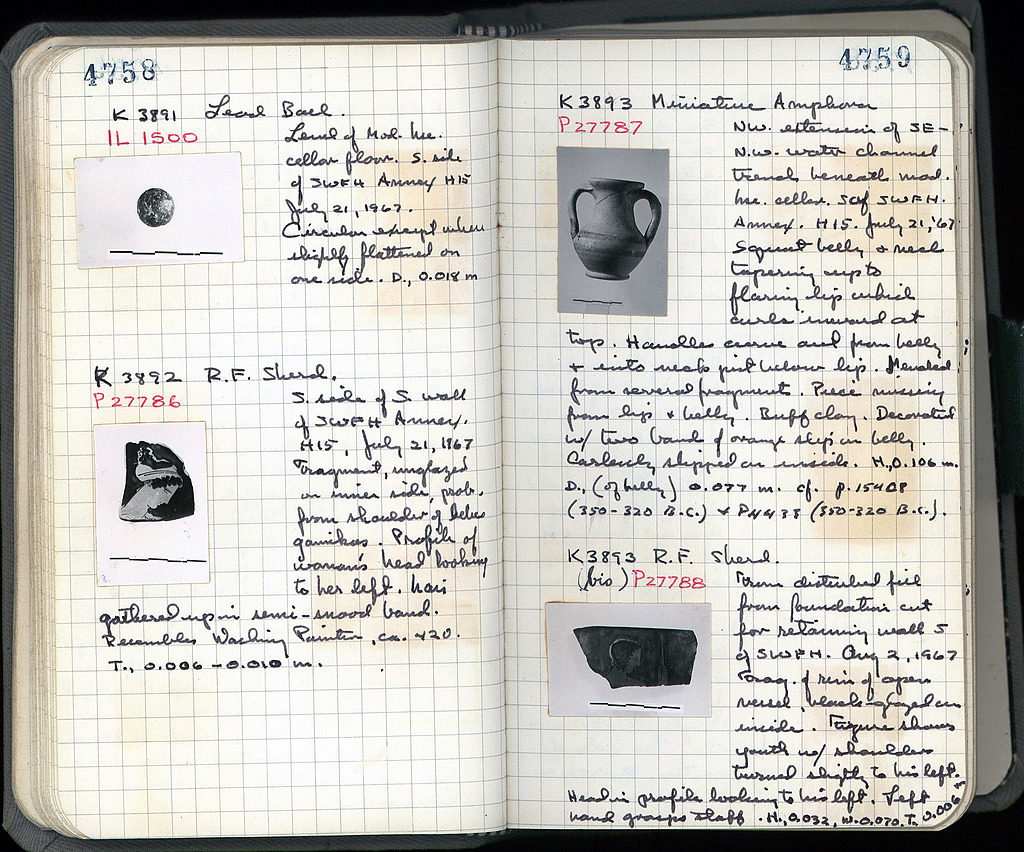 4758
K 3891 Lead Ball.
IL 1500
Level of Mod. hse.
cellar floor. S. side
of SWFH Annex H15
July 21, 1967.
Circular except where
slightly flattened on
one side. D., 0.018 m
K 3892 R.F. Sherd.
P27786
S. side of S. wall
of SWFH Annex.
H15, July 21, 1967
Fragment, unglazed
on inner side, prob.
from shoulder of lebes
gamikos. Profile of
woman's head looking
to her left. hair
gathered up in semi-snood band.
Resembles Washing Painter, ca. 420.
T., 0.006-0.010 m.
4759
K 3893 Miniature Amphora
P27787
NW. extension of SE-
N.W. water channel
trench beneath mod.
hse. cellar. S of SWFH.
Annex. H15. July 21, '67
Squat belly + neck
tapering up to
flaring lip which
curls inward at
top. Handles curve out from belly
+ into neck just below lip. Mended
from several fragments. Piece missing
from lip + belly. Buff clay. Decorated
w/ two band of orange slip on belly.
Carlessly slipped on inside. H., 0.106 m.
D., (of belly) 0.077 m. cf. P.15408
(350-320 B.C.) + P4438 (350-320 B.C.).
K 3893 R.F. Sherd.
(bis) P27788
From disturbed fill
from foundation cut
for retaining wall S
of SWFH. Aug 2, 1967
Frag. of rim of open
vessel, black-glazed on
inside. Figure shows
youth w/ shoulders
turned slightly to his left.
Head in profile looking to his left. Left
hand grasps staff. H., 0.032, W. 0.070, T. 0.006 m